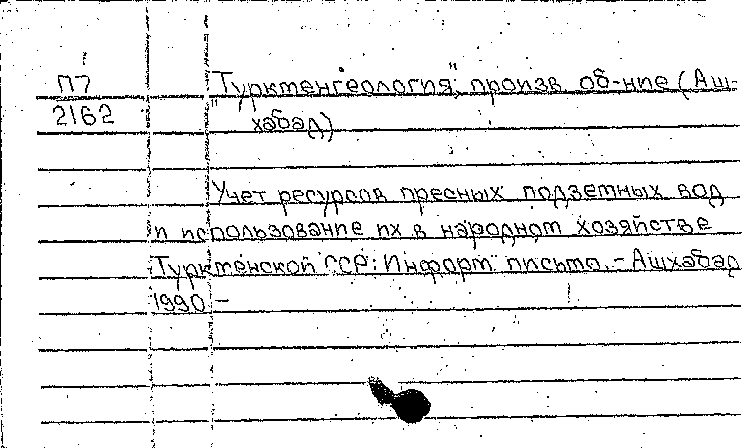 П7
2162
"Туркменгеология", произв. об-ние (Аш-
хабад)
Учет ресурсов пресных подземных вод
и использование их в народном хозяйстве
Туркменской ССР: Информ. письмо. - Ашхабад
1990 -